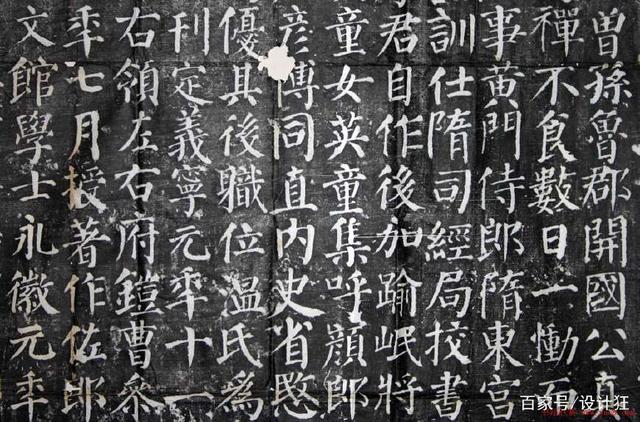 曾孫魯郡開國公真
禪不食數日一慟而
事黃門侍郎隋東宮
訓仕隋司經局挍書
君自作後加踰岷將
童女英童集呼顏郎
彥博同直內史省愍
優其後職位溫氏爲
刊定義寧元秊十一
右領左右府鎧曹參
秊七月授著作佐郎
文館學士永徽元秊
百家号/设计狂